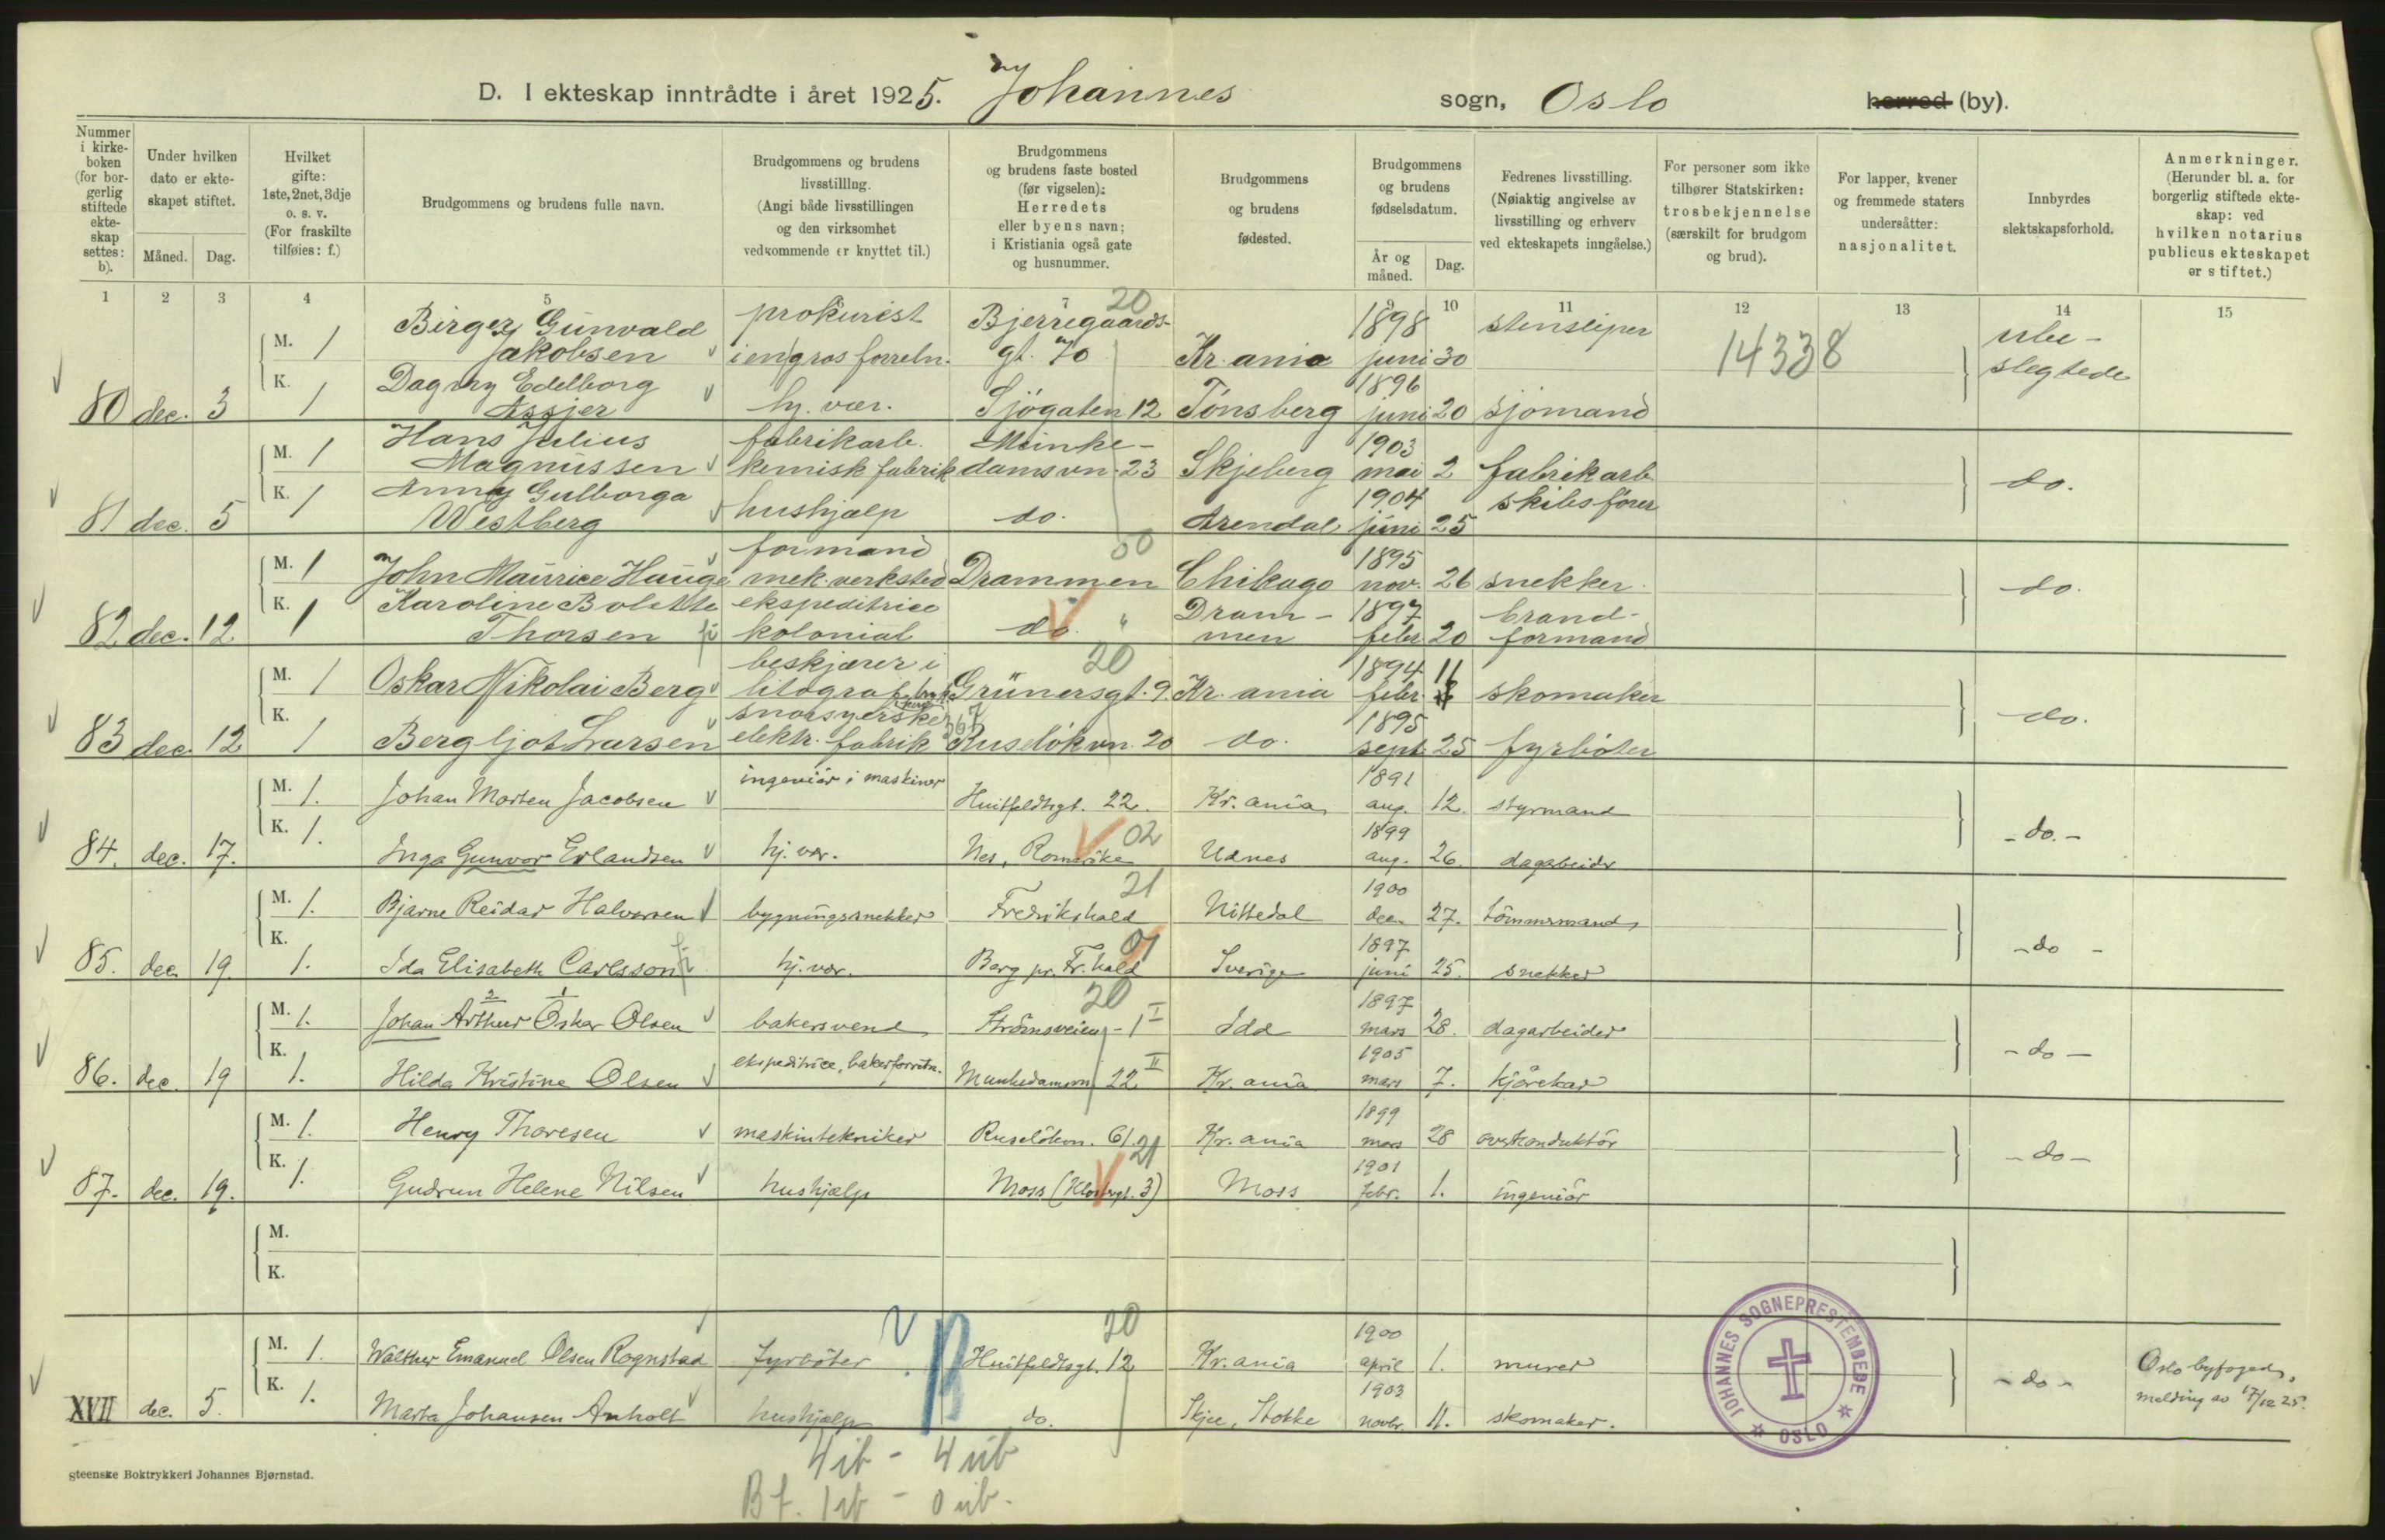 D. I ekteskap inntrådte i året 1925. Johannes sogn, Oslo herred (by).
Nummer i kirke-boken (for bor-gerlig stiftede ekte-skap settes: b).
Under hvilken dato er ekte-skapet stiftet.
Måned.
Dag.
Hvilket gifte: 1ste, 2net, 3dje o. s. v. (For fraskilte tilføies: f.)
Brudgommens og brudens fulle navn.
Brudgommens og brudens livsstilllng. (Angi både livsstillingen og den virksomhet vedkommende er knyttet til.)
Brudgommens og brudens faste bosted (før vigselen): Herredets eller byens navn; i Kristiania også gate og husnummer.
Brudgommens og brudens fødested.
Brudgommens og brudens fødselsdatum.
År og måned.
Dag.
Fedrenes livsstilling. (Nøiaktig angivelse av livsstilling og erhverv ved ekteskapets inngåelse.)
For personer som ikke tilhører Statskirken: trosbekjennelse (særskilt for brudgom og brud).
For lapper, kvener og fremmede staters undersåtter: nasjonalitet.
Innbyrdes slektskapsforhold.
Anmerkninger. (Herunder bl. a. for borgerlig stiftede ekte-skap: ved hvilken notarius publicus ekteskapet er stiftet.)
1 2 3 4 5 6 7 9 10 11 12 13 14 15
20
M. 1 Birger Gunvald Jakobsen prokurist i engros forretn. Bjerregaards-gt. 70 Kr.ania 1898 juni 30 stensliper 14338 ube-slegtede
80 dec. 3 K. 1 Dagny Edelborg Assjer hj. vær. Sjøgaten 12 Tönsberg 1896 juni 20 sjömand
M. 1 Hans Julius Magnussen fabrikarb. kemisk fabrik Munke-damsvn. 23 Skjeberg 1903 mai 2 fabrikarb do.
81 dec. 5 K. 1 Anny Gulborga Westberg hushjælp do. Arendal 1904 juni 25 skibsförer
50
M. 1 John Maurice Hauge formand mek. verksted Drammen Chikago 1895 nov. 26 snekker. do.
82 dec. 12 K. 1 Karoline Bolette Thorsen ekspeditrice kolonial do. " Dram-men 1897 febr 20 brand-formand
20
M. 1 Oskar Nikolai Berg beskjærer i litograf. Grünersgt. 9 Kr.ania 1894 febr. 11 skomaker do.
83 dec. 12 K. 1 Bergljot Larsen elektr. fabrik Ruselökvn. 20 do. 1895 sept 25 fyrböter
M. 1. Johan Morten Jacobsen ingeniör i maskiner Huitfeldtsgt. 22. Kr.ania 1891 aug. 12. styrmand - do. -
84. dec. 17. K. 1. Inga Gunvor Erlandsen hj. vær. Nes, Romerike 02 Udnes 1899 aug. 26. dagarbeider
21
M. 1. Bjarne Reidar Halvorsen bygningssnekker Fredrikshald Nittedal 1900 dec. 27. tömmermand - do -
85. dec. 19. K. 1. Ida Elisabeth Carlsson hj. vær. Berg pr. Fr.hald 01 Sverige 1897 juni 25. snekker
20
M. 1. Johan Arthur Oskar Olsen bakersvend Strömsveien - 1 I Idd 1897 mars 28. dagarbeider - do -
86. dec. 19 K. 1. Hilda Kristine Olsen ekspeditrice, bakerforretn. Munkedamsvn 22 II Kr.ania 1905 mars 7. kjörekar
M. 1. Henry Thoresen maskintekniker Ruselökvn. 61. Kr.ania 1899 mars 28 overkonduktör - do -
21
87. dec. 19. K. 1. Gudrun Helene Nilsen hushjælp Moss (Klostergt. 3) Moss 1901 febr. 1. ingeniör
M.
K.
20
M. 1. Walther Emanuel Olsen Rognstad fyrböter Huitfeldtsgt. 12 Kr.ania 1900 april 1. murer - do - Oslo byfoged,
XVII dec. 5. K. 1. Marta Johansen Anholt hushjælp do. Skjee, Stokke 1903 novbr. 11. skomaker. melding av 17/12 25.
B
JOHANNES SOGNEPRESTEMBEDE
OSLO
4 ib - 4 ub
Bf. 1 ib - 0 ub.
Steenske Boktrykkeri Johannes Bjørnstad.